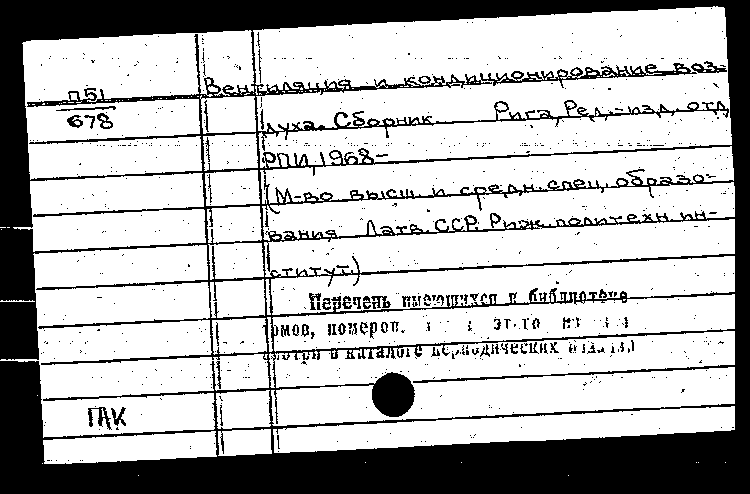 П51
678
Вентиляция и кондиционирование воз-
духа. Сборник. Рига, Ред.-изд. отд.
РПИ, 1968-
(М-во высш. и средн. спец. образо-
вания Латв. ССР. Риж. политехн. ин-
ститут.)
Перечень имеющихся в библиотеке
томов, номеров.
смотри в каталоге периодических
ГПК